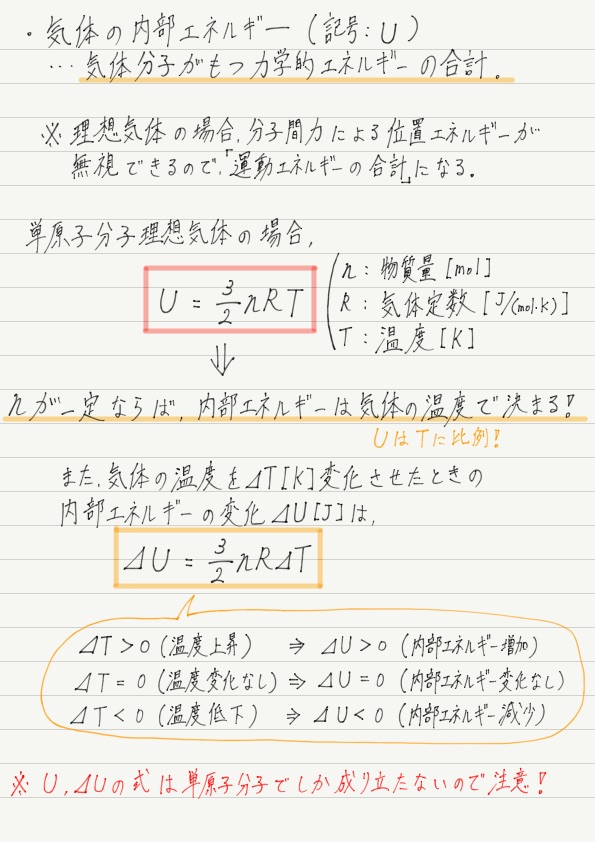 ・気体の内部エネルギー（記号: U）
… 気体分子がもつ力学的エネルギーの合計。
※ 理想気体の場合、分子間力による位置エネルギーが
無視できるので、「運動エネルギーの合計」になる。
単原子分子理想気体の場合、
U = 3/2 nRT
n : 物質量 [mol]
R : 気体定数 [J/(mol·K)]
T : 温度 [K]
⇓
nが一定ならば、内部エネルギーは気体の温度で決まる!
UはTに比例!
また、気体の温度をΔT[K]変化させたときの
内部エネルギーの変化ΔU[J]は、
ΔU = 3/2 nRΔT
ΔT > 0 (温度上昇) ⇒ ΔU > 0 (内部エネルギー増加)
ΔT = 0 (温度変化なし) ⇒ ΔU = 0 (内部エネルギー変化なし)
ΔT < 0 (温度低下) ⇒ ΔU < 0 (内部エネルギー減少)
※ U, ΔUの式は単原子分子でしか成り立たないので注意!